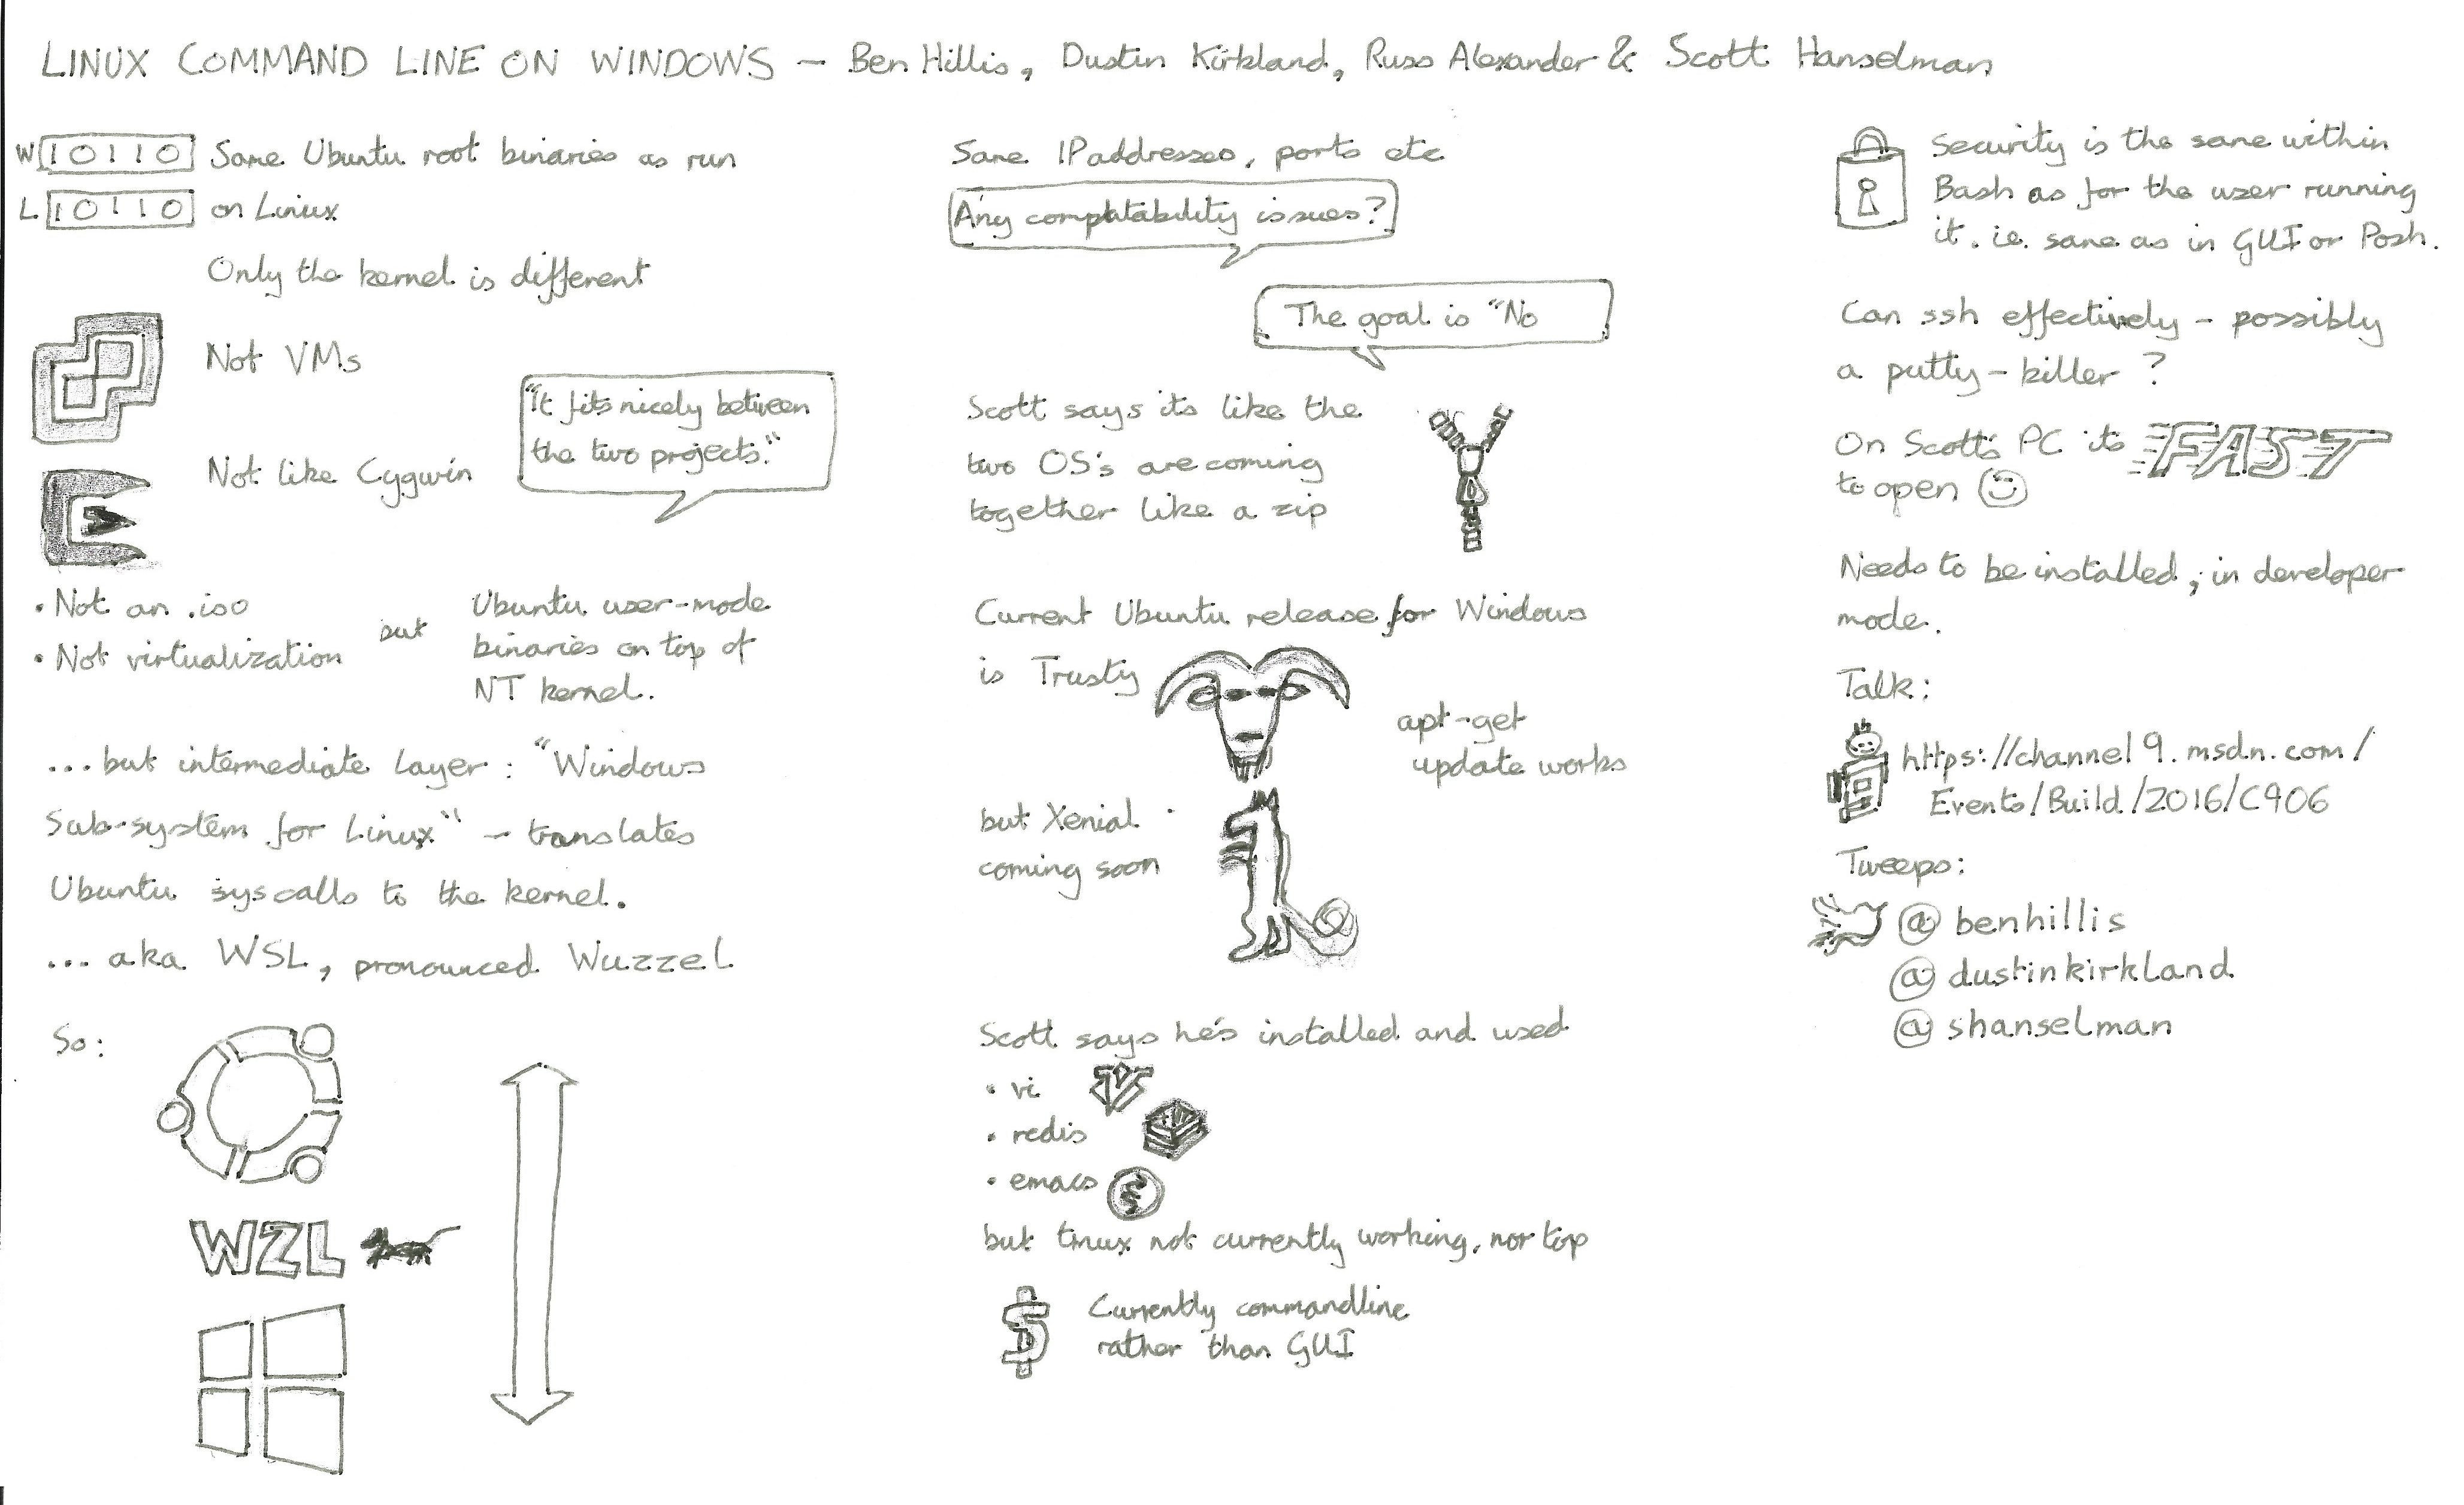 LINUX COMMAND LINE ON WINDOWS - Ben Hillis, Dustin Kirkland, Russ Alexander & Scott Hanselman
W 10110 Same Ubuntu root binaries as run
L 10110 on Linux
Only the kernel is different
Not VMs
"It fits nicely between
the two projects."
Not like Cygwin
• Not an .iso
• Not virtualization
but
Ubuntu user-mode
binaries on top of
NT kernel.
...but intermediate layer: "Windows
Sub-system for Linux" - translates
Ubuntu syscalls to the kernel.
... aka WSL, pronounced Wuzzel
So:
WZL
Same IP addresses, ports etc
Any compatability issues?
The goal is "No
Scott says its like the
two OS's are coming
together like a zip
Current Ubuntu release for Windows
is Trusty
apt-get
update works
but Xenial
coming soon
Scott says he's installed and used
• vi
• redis
• emacs
but tmux not currently working, nor top
$ Currently commandline
rather than GUI
Security is the same within
Bash as for the user running
it. ie. same as in GUI or Posh.
Can ssh effectively - possibly
a putty-killer ?
On Scott's PC its FAST
to open
Needs to be installed, in developer
mode.
Talk:
https://channel9.msdn.com/
Events/Build/2016/C906
Tweeps:
@benhillis
@dustinkirkland
@shanselman